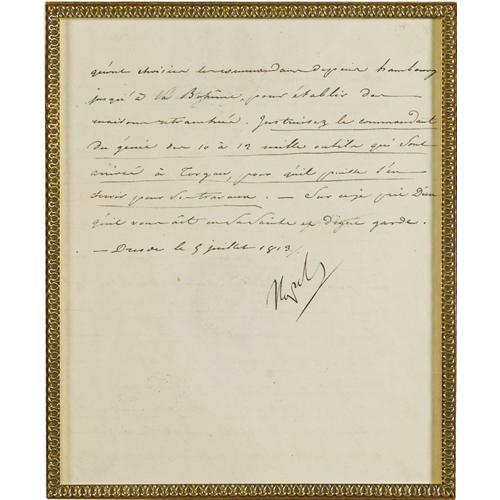 choisir les commandans depuis hambourg
jusqu'à la Bohême, pour établir des
maisons retranchées. Instruisez le commandant
du génie des 10 à 12 mille outils qui sont
arrivés à Torgau, pour qu'il puisse s'en
servir pour ses travaux. — Sur ce je prie Dieu
qu'il vous ait en sa sainte et digne garde.
— Dresde le 5 juillet 1813
Nap